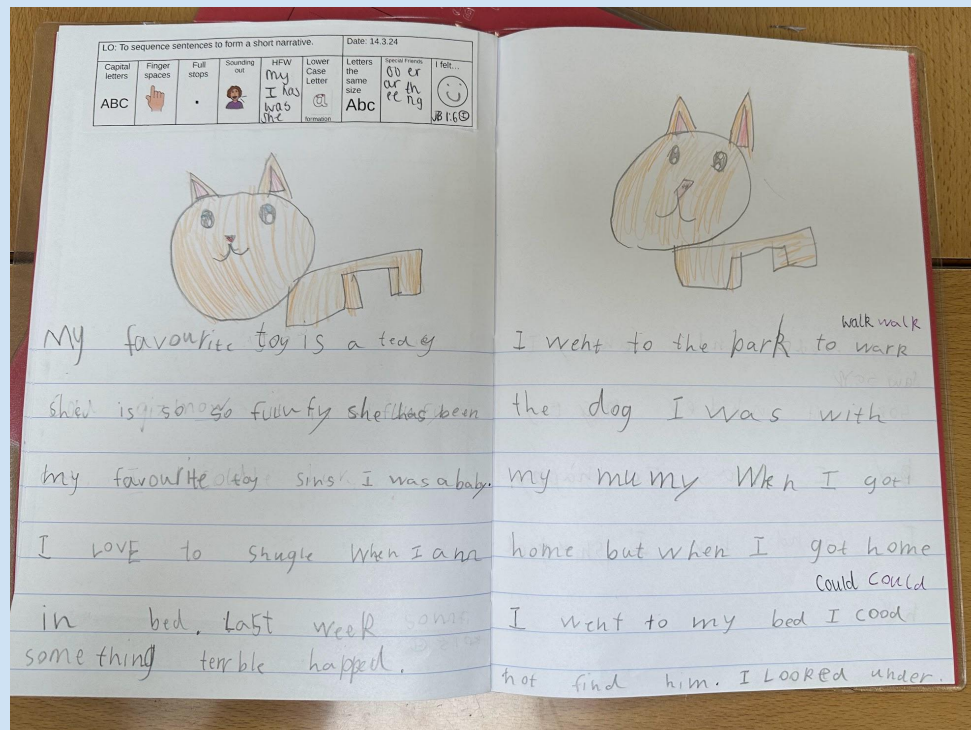 LO: To sequence sentences to form a short narrative. Date: 14.3.24
Capital letters
ABC
Finger spaces
Full stops
.
Sounding out
HFW
my
I has
was
she
Lower Case Letter
a
formation
Letters the same size
Abc
Special Friends
oo er
ar th
ee ng
I felt...
My favourite toy is a tedy
she is so so fuunfy she has been
my favourite toy sins I was a baby.
I LOVE to snugle when I am
in bed. Last week
something terrble happed.
walk walk
I went to the park to wark
the dog I was with
my mumy When I got
home but when I got home
could could
I went to my bed I cood
not find him. I Looked under.